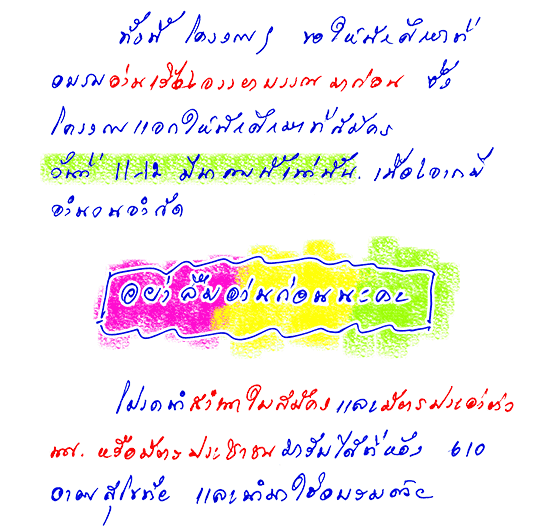 ทั้งนี้ โครงการฯ ขอให้นักศึกษาที่
อบรมอ่านเรื่องจรรยาบรรณมาก่อน ซึ่ง
โครงการแจกให้นักศึกษาที่สมัคร
วันที่ 11-12 มีนาคมนี้เท่านั้น. เนื่องจากมี
จำนวนจำกัด
อย่าลืมอ่านก่อนนะคะ
โปรดนำสำเนาใบสมัคร และบัตรประจำตัว
นศ. หรือบัตรประชาชน มารับได้ที่ห้อง 610
อาคารสุโขทัย และนำมาใช้อบรมด้วย